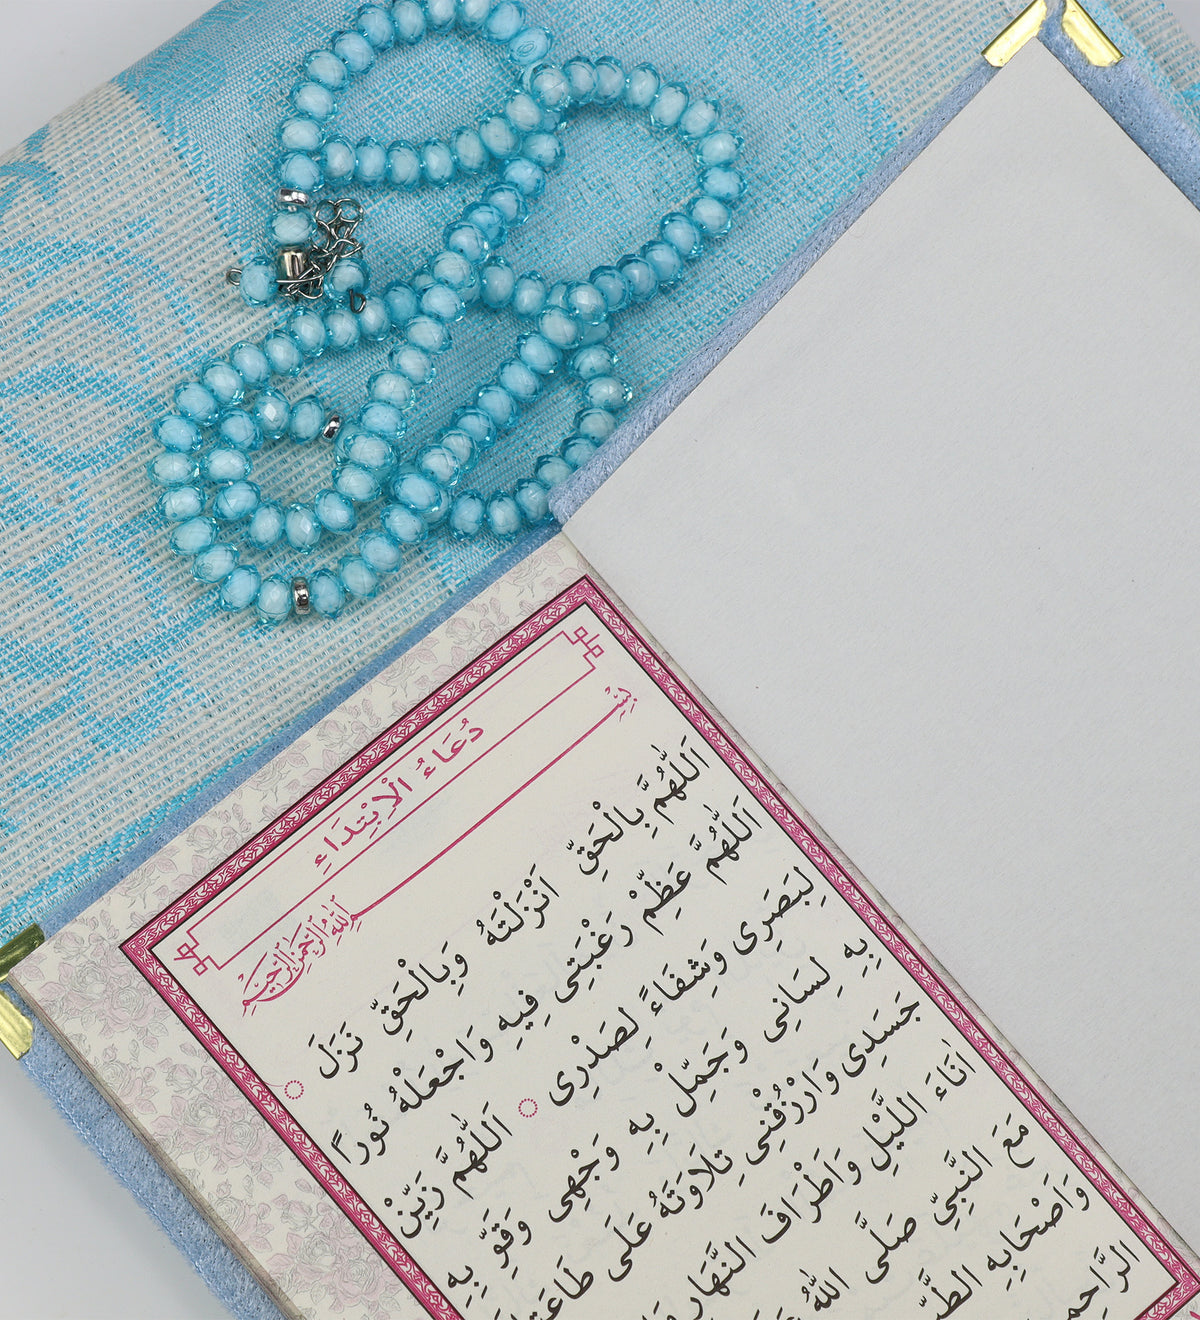 دُعَاءُ الْاِبْتِدَاءِ
بِسْمِ اللّٰهِ الرَّحْمٰنِ الرَّحٖيمِ
اَللّٰهُمَّ بِالْحَقِّ اَنْزَلْتَهُ وَبِالْحَقِّ نَزَلَ
اَللّٰهُمَّ عَظِّمْ رَغْبَتٖى فٖيهِ وَاجْعَلْهُ نُورًا
لِبَصَرٖى وَشِفَاءً لِصَدْرٖى اَللّٰهُمَّ زَيِّنْ
بِهِ لِسَانٖى وَجَمِّلْ بِهِ وَجْهٖى وَقَوِّ بِهِ
جَسَدٖى وَارْزُقْنٖى تِلَاوَتَهُ عَلٰى
اٰنَاءَ الَّيْلِ وَاَطْرَافَ النَّهَارِ
مَعَ النَّبِىِّ صَلَّى اللّٰهُ
وَاَصْحَابِهِ